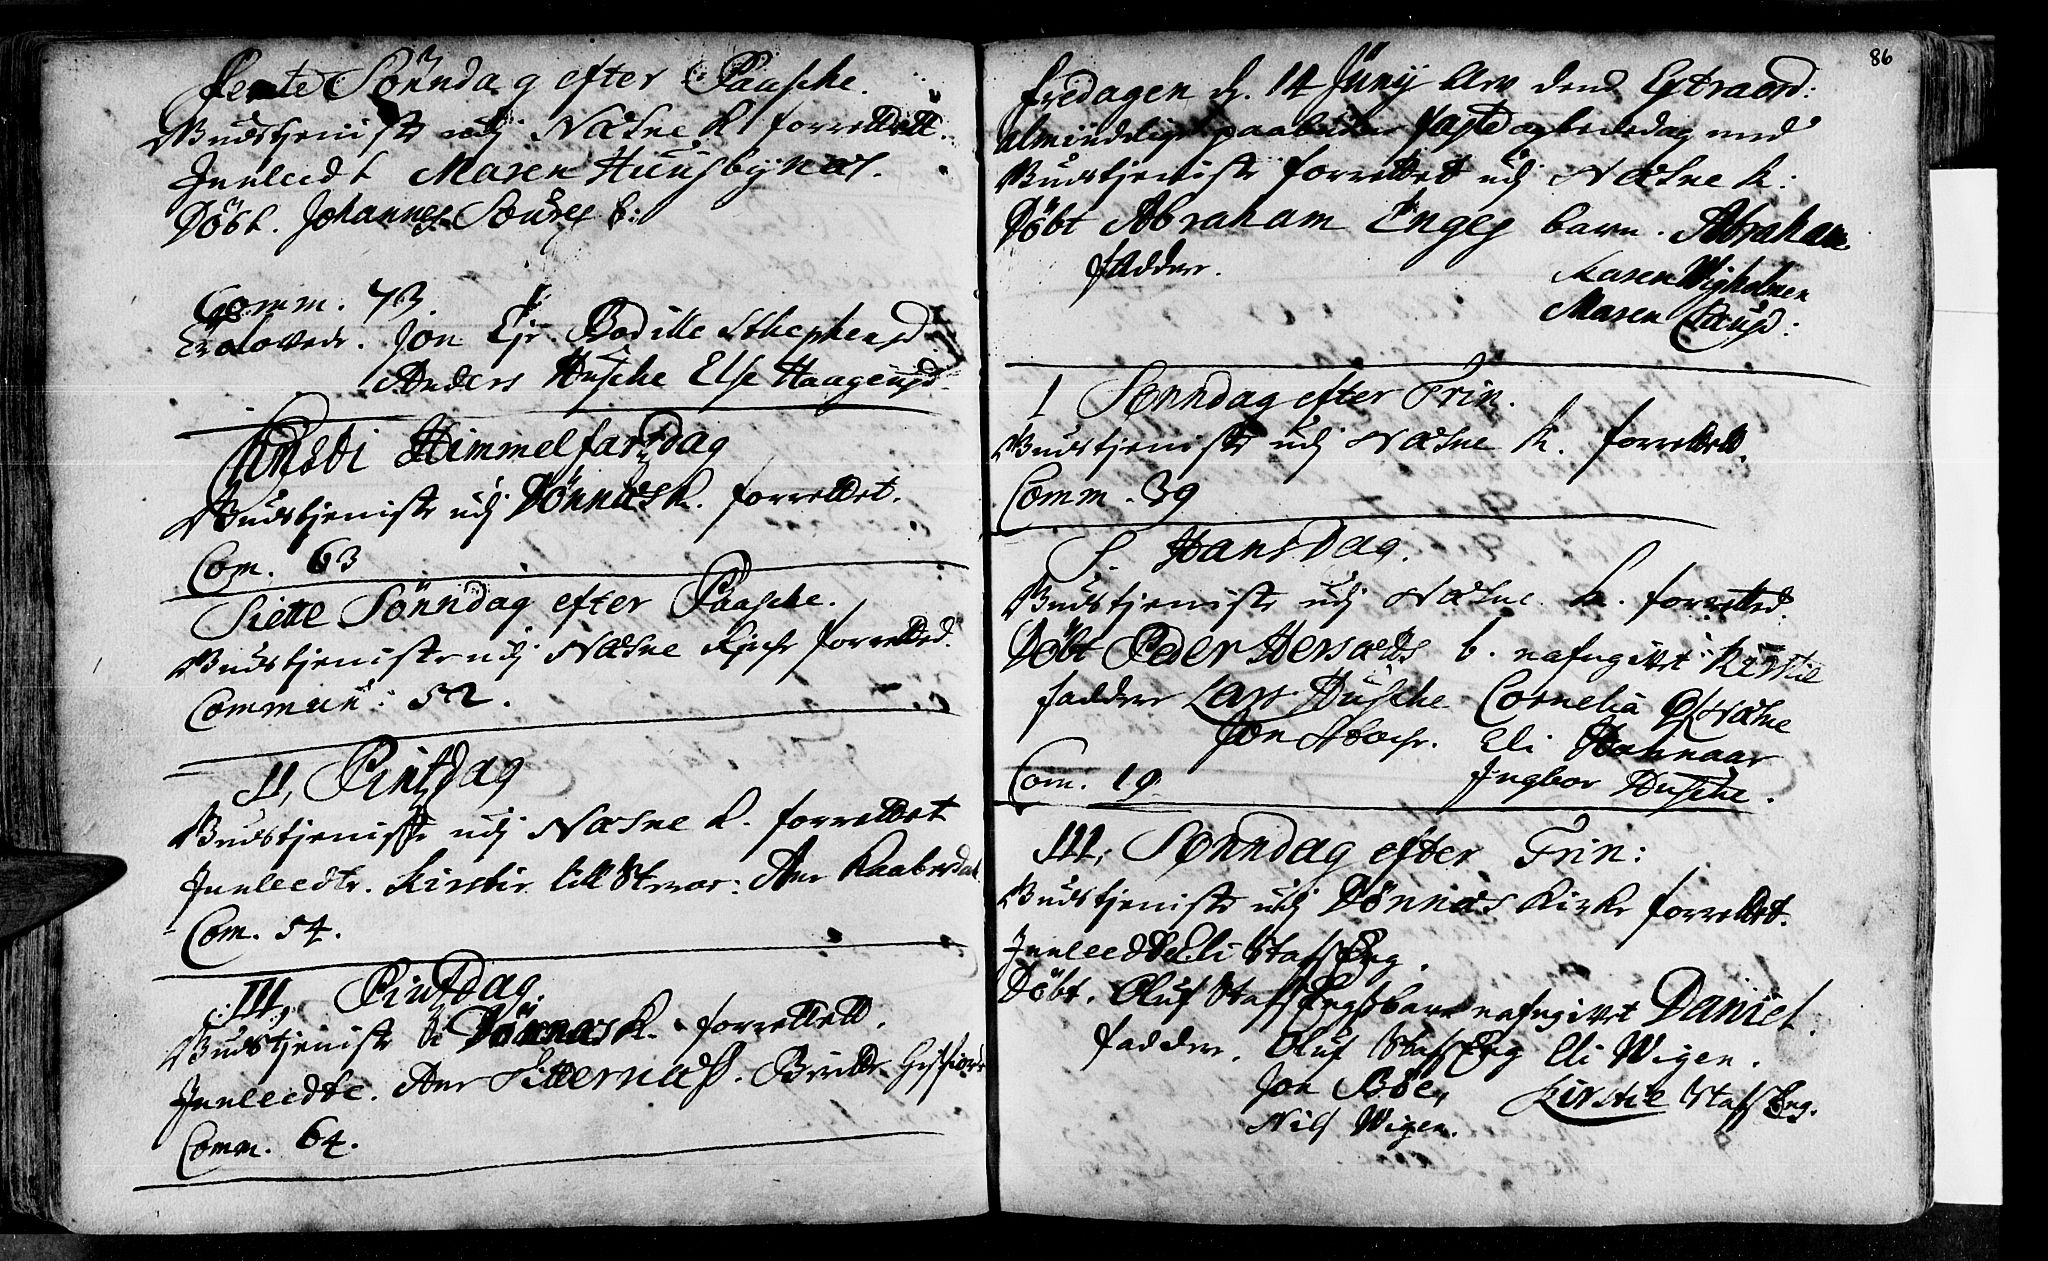 Femte Sönndag efter Paasche.
Gudstjeniste udj Næsne K. forrettett.
Innleedt Maren Huusbynæs.
Döbt. Johannes b:
Comm. 73.
Trolovede. Jon Ejr Bodille Sthephensd
Anders Husche Else Haagensd
Christi Himmelfartzdag
Gudstjeniste udj Dönnæs K. forrettet.
Com. 63
Siette Sönndag efter Paasche.
Gudstjeniste udj Næsne Kirche forretted.
Commun: 52.
II, Pintzdag
Gudstjeniste udj Næsne K. forrettet
Innleedte. Kirstie Ann
Com. 54.
III, Pintzdag
Gudstjeniste i Dönnæs K. forrettett.
Innleedte. Ann Britte
Comm. 64.
86
fredagen d. 14 Junij dend Extraord:
almindelige paabudne faste og bededag med
Gudstjeniste forrettet udj Næsne K:
Döbt Abraham Enges barn. Abraham
faddere. Maren Wigholmen
Maren
1 Sönndag efter Trin.
Gudstjeniste udj Næsne K. forrettett.
Comm. 39
S. Hansdag.
Gudstjeniste udj Næsne K. forretted.
Döbt Peder b. nafngivet: Kirstie
faddere Lars Husche Cornelia Næsne
Jon Eli
Com. 19 Ingbor Husche.
III, Sönndag efter Trin:
Gudstjeniste udj Dönnæs Kirke forrettet.
Innleedt Eli Stafs Eng.
Döbt. Oluf Stafs Engs barn nafngivet Daniel.
faddere. Oluf Stafs Eng Eli Wigen.
Jon Böe, Kirstie Stafs Eng.
Nils Wigen.